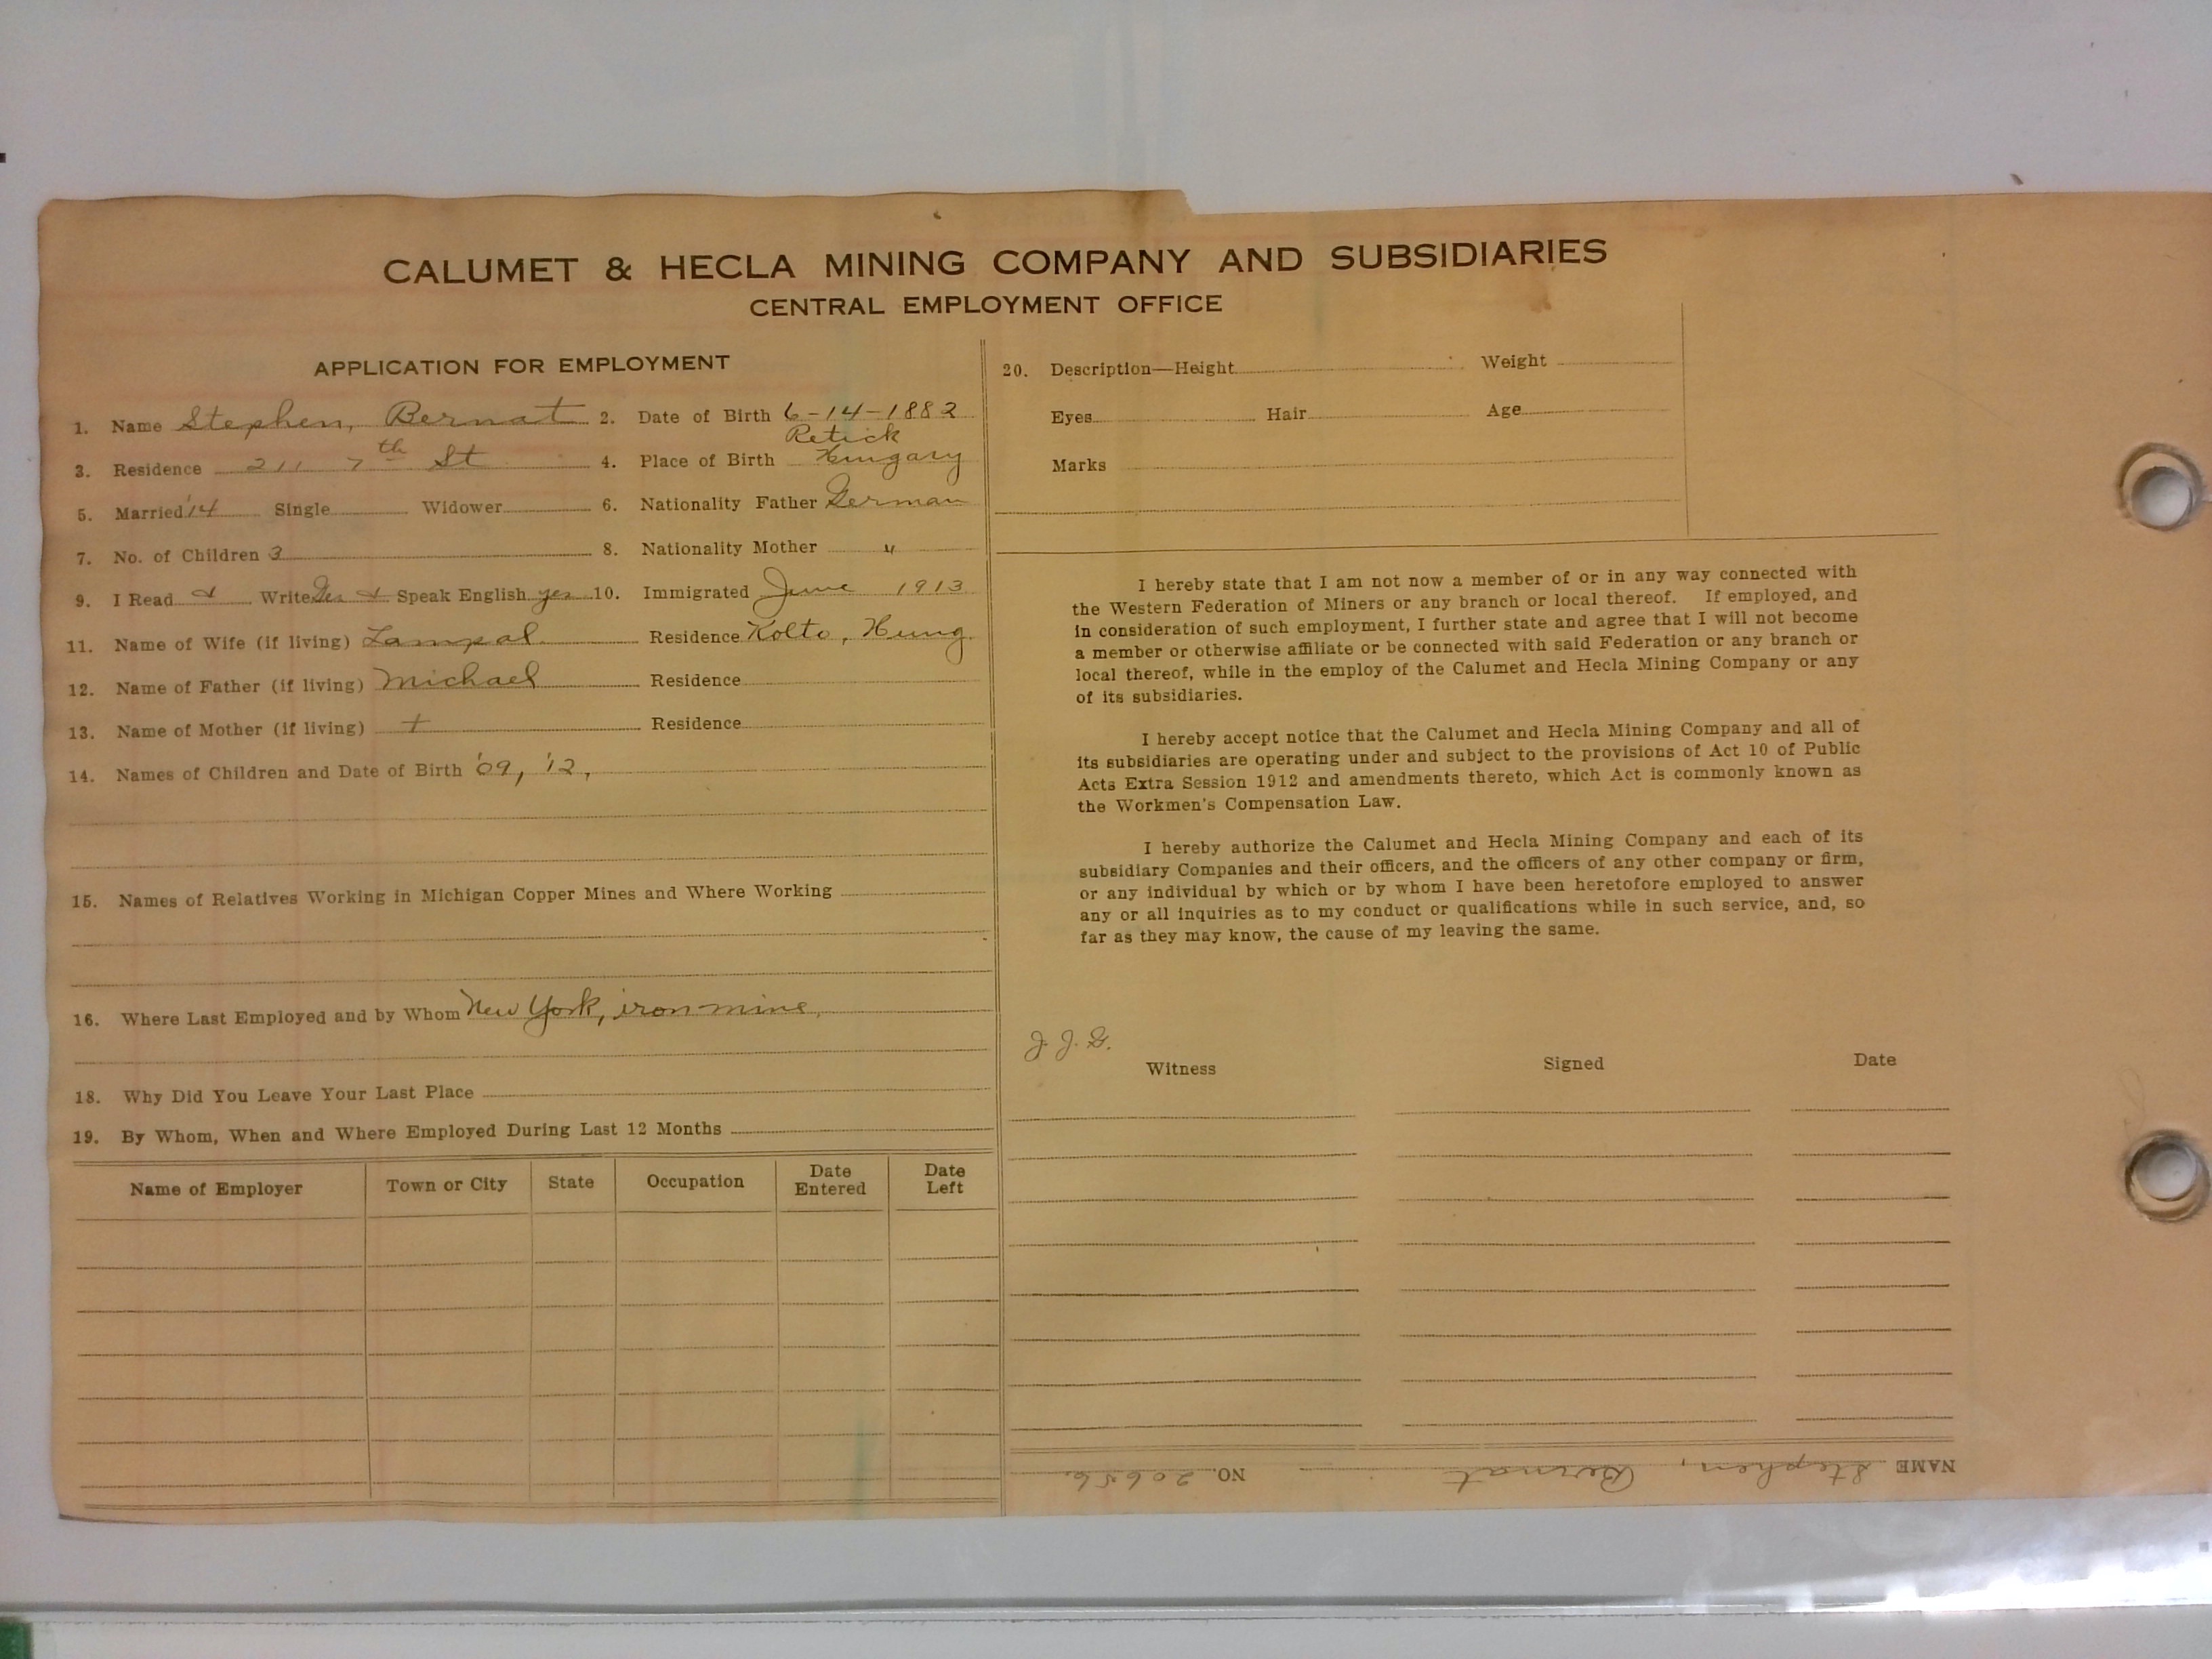 CALUMET & HECLA MINING COMPANY AND SUBSIDIARIES
CENTRAL EMPLOYMENT OFFICE
APPLICATION FOR EMPLOYMENT
1. Name Stephen, Bernat 2. Date of Birth 6-14-1882
Retick
3. Residence 211 7th St 4. Place of Birth Hungary
5. Married '14 Single Widower 6. Nationality Father German
7. No. of Children 3 8. Nationality Mother "
9. I Read Write Speak English yes 10. Immigrated June 1913
11. Name of Wife (if living) Residence Kolto, Hung.
12. Name of Father (if living) Michael Residence
13. Name of Mother (if living) + Residence
14. Names of Children and Date of Birth '09, '12,
15. Names of Relatives Working in Michigan Copper Mines and Where Working
16. Where Last Employed and by Whom New York, iron mine,
18. Why Did You Leave Your Last Place
19. By Whom, When and Where Employed During Last 12 Months
Name of Employer Town or City State Occupation Date Entered Date Left
20. Description—Height Weight
Eyes Hair Age
Marks
I hereby state that I am not now a member of or in any way connected with
the Western Federation of Miners or any branch or local thereof. If employed, and
in consideration of such employment, I further state and agree that I will not become
a member or otherwise affiliate or be connected with said Federation or any branch or
local thereof, while in the employ of the Calumet and Hecla Mining Company or any
of its subsidiaries.
I hereby accept notice that the Calumet and Hecla Mining Company and all of
its subsidiaries are operating under and subject to the provisions of Act 10 of Public
Acts Extra Session 1912 and amendments thereto, which Act is commonly known as
the Workmen's Compensation Law.
I hereby authorize the Calumet and Hecla Mining Company and each of its
subsidiary Companies and their officers, and the officers of any other company or firm,
or any individual by which or by whom I have been heretofore employed to answer
any or all inquiries as to my conduct or qualifications while in such service, and, so
far as they may know, the cause of my leaving the same.
J. J. G.
Witness Signed Date
NAME Stephen, Bernat NO. 20656